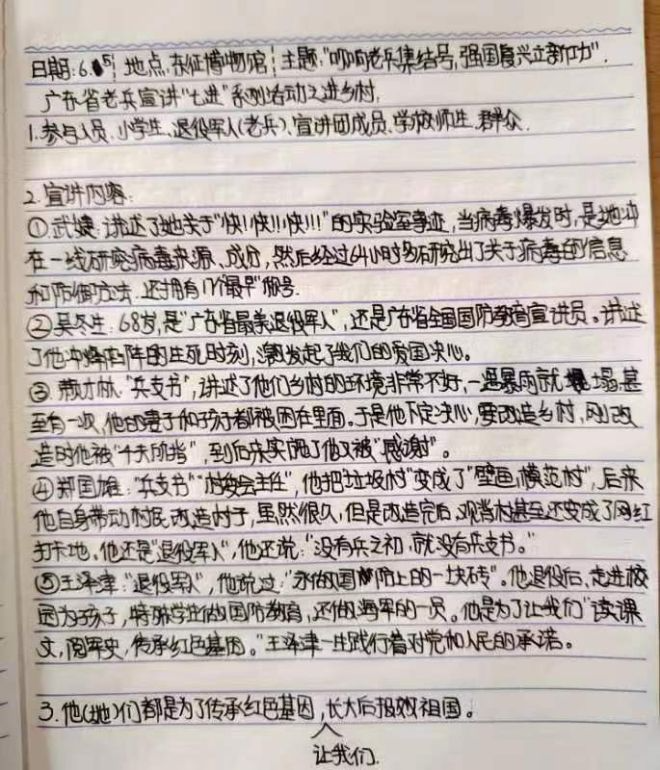 日期:6.5 地点:东征博物馆 主题:"吹响老兵集结号,强国复兴立新功".
广东省老兵宣讲"七进"系列活动之进乡村.
1.参与人员.小学生、退役军人(老兵)、宣讲团成员、学校师生、群众.
2.宣讲内容:
①武婕:讲述了她关于"快!快!!快!!!"的实验室事迹,当病毒爆发时,是她冲
在一线研究病毒来源、成分,然后经过64小时多研究出了关于病毒的信息
和防御方法.还拥有17个"最早"称号.
②吴冬生:68岁,是"广东省最美退役军人",还是广东省全国国防教育宣讲员。讲述
了他冲锋陷阵的生死时刻,激发起了我们的爱国决心。
③ 才林."兵支书",讲述了他们乡村的环境非常不好,一遇暴雨就塌,甚
至有一次,他的妻子和孩子都被困在里面。于是他下定决心,要改造乡村,刚改
造时他被"千夫所指",到后来实现了他又被"感谢"。
④郑国雄:"兵支书""村委会主任",他把"垃圾村"变成了"壁画模范村",后来
他自身带动村民改造村子,虽然很久,但是改造完后,观背村甚至还变成了网红
打卡地。他还是"退役军人",他还说:"没有兵之初,就没有兵支书。"
⑤王泽津:"退役军人",他说过:"永做国防上的一块砖"。他退役后,走进校
园为孩子,特殊学生做国防教育,还做海军的一员。他是为了让我们"读课
文,阅军史,传承红色基因。"王泽津一生践行着对党和人民的承诺。
3.他(她)们都是为了传承红色基因,长大后报效祖国。
让我们.